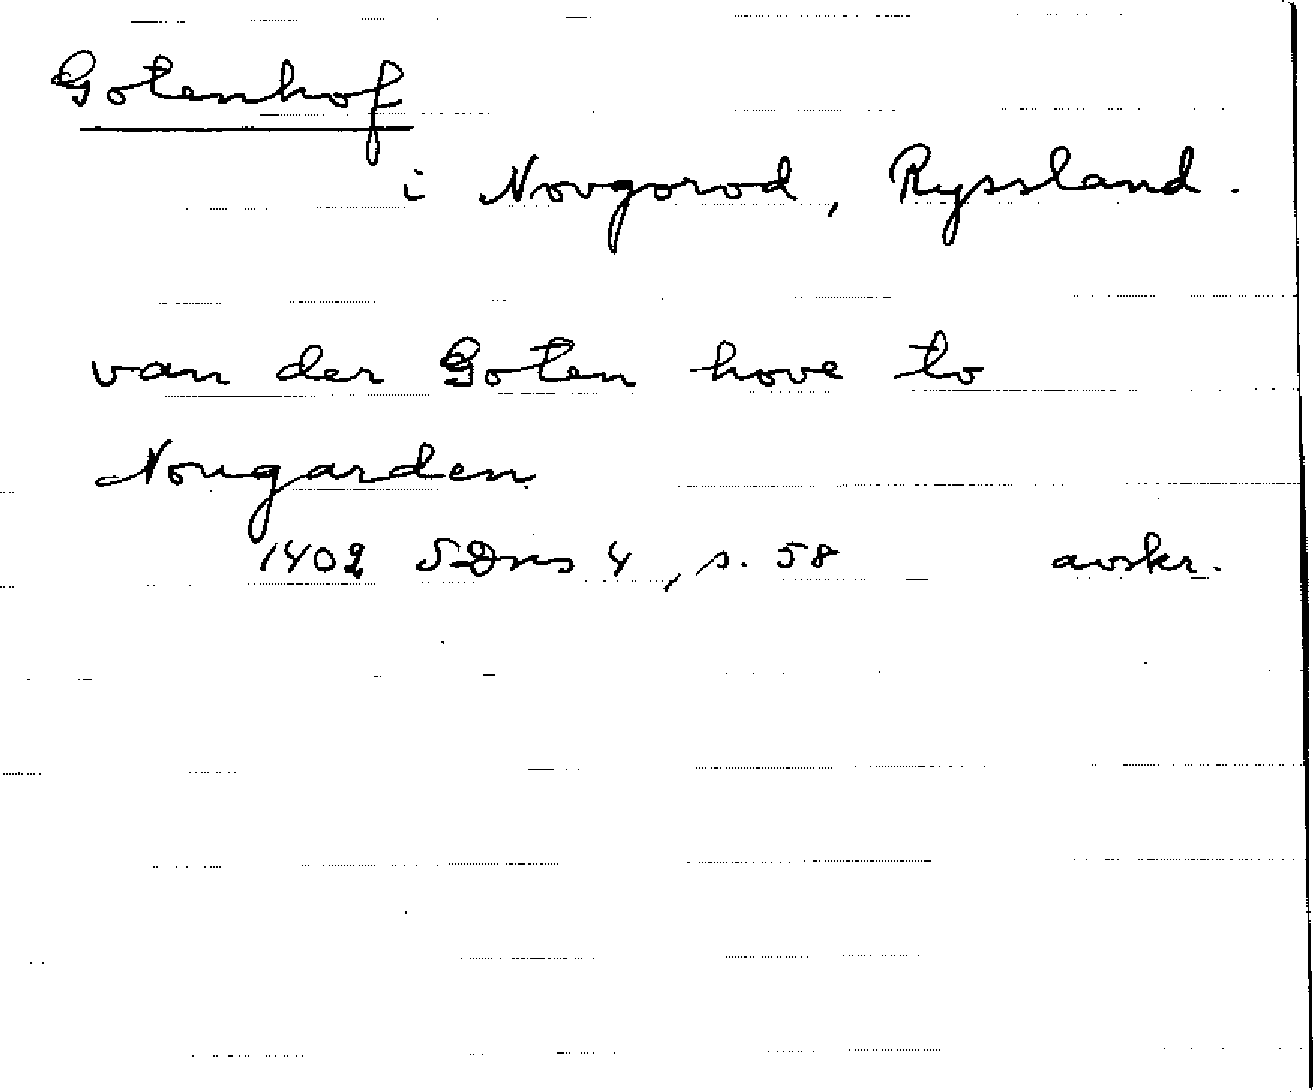 Gotenhof
i Novgorod, Ryssland.
van der Goten hove to
Nougarden
1402 SDns 4, s. 58 avskr.